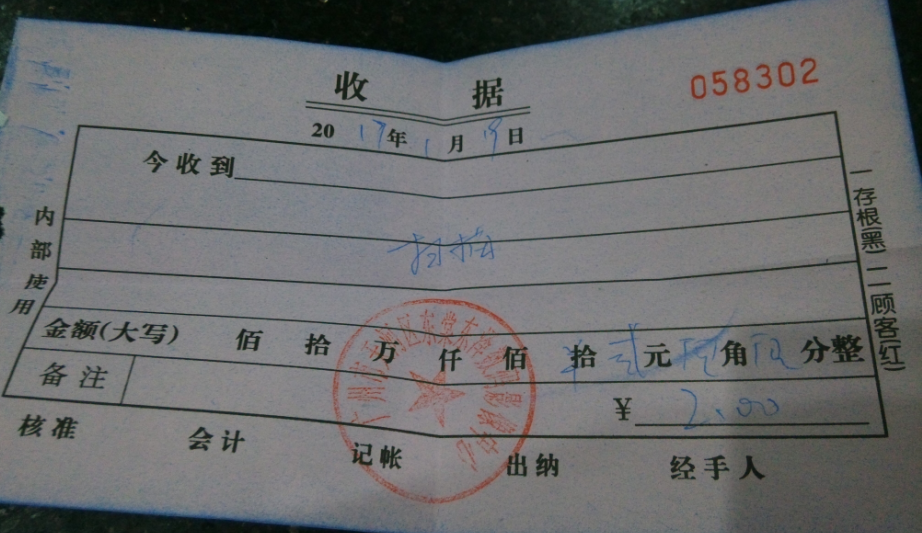 收据
058302
2017年1月19日
今收到
扫描
内部使用
一存根(黑)二顾客(红)
金额(大写) 佰 拾 万 仟 佰 拾 贰 元 角 分整
备注
¥ 2.00
核准 会计 记帐 出纳 经手人